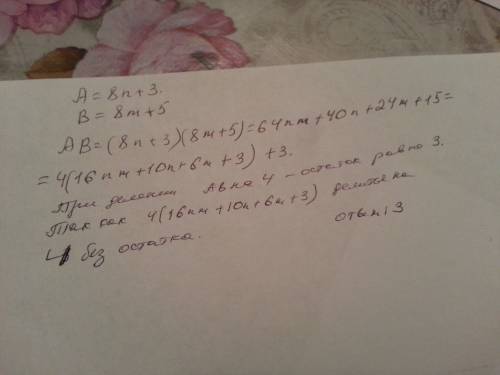 A = 8n + 3.
B = 8m + 5
AB = (8n + 3)(8m + 5) = 64nm + 40n + 24m + 15 =
= 4(16nm + 10n + 6m + 3) + 3.
При делении AB на 4 - остаток равно 3.
Так как 4(16nm + 10n + 6m + 3) делится на
4 без остатка.
ответ: 3